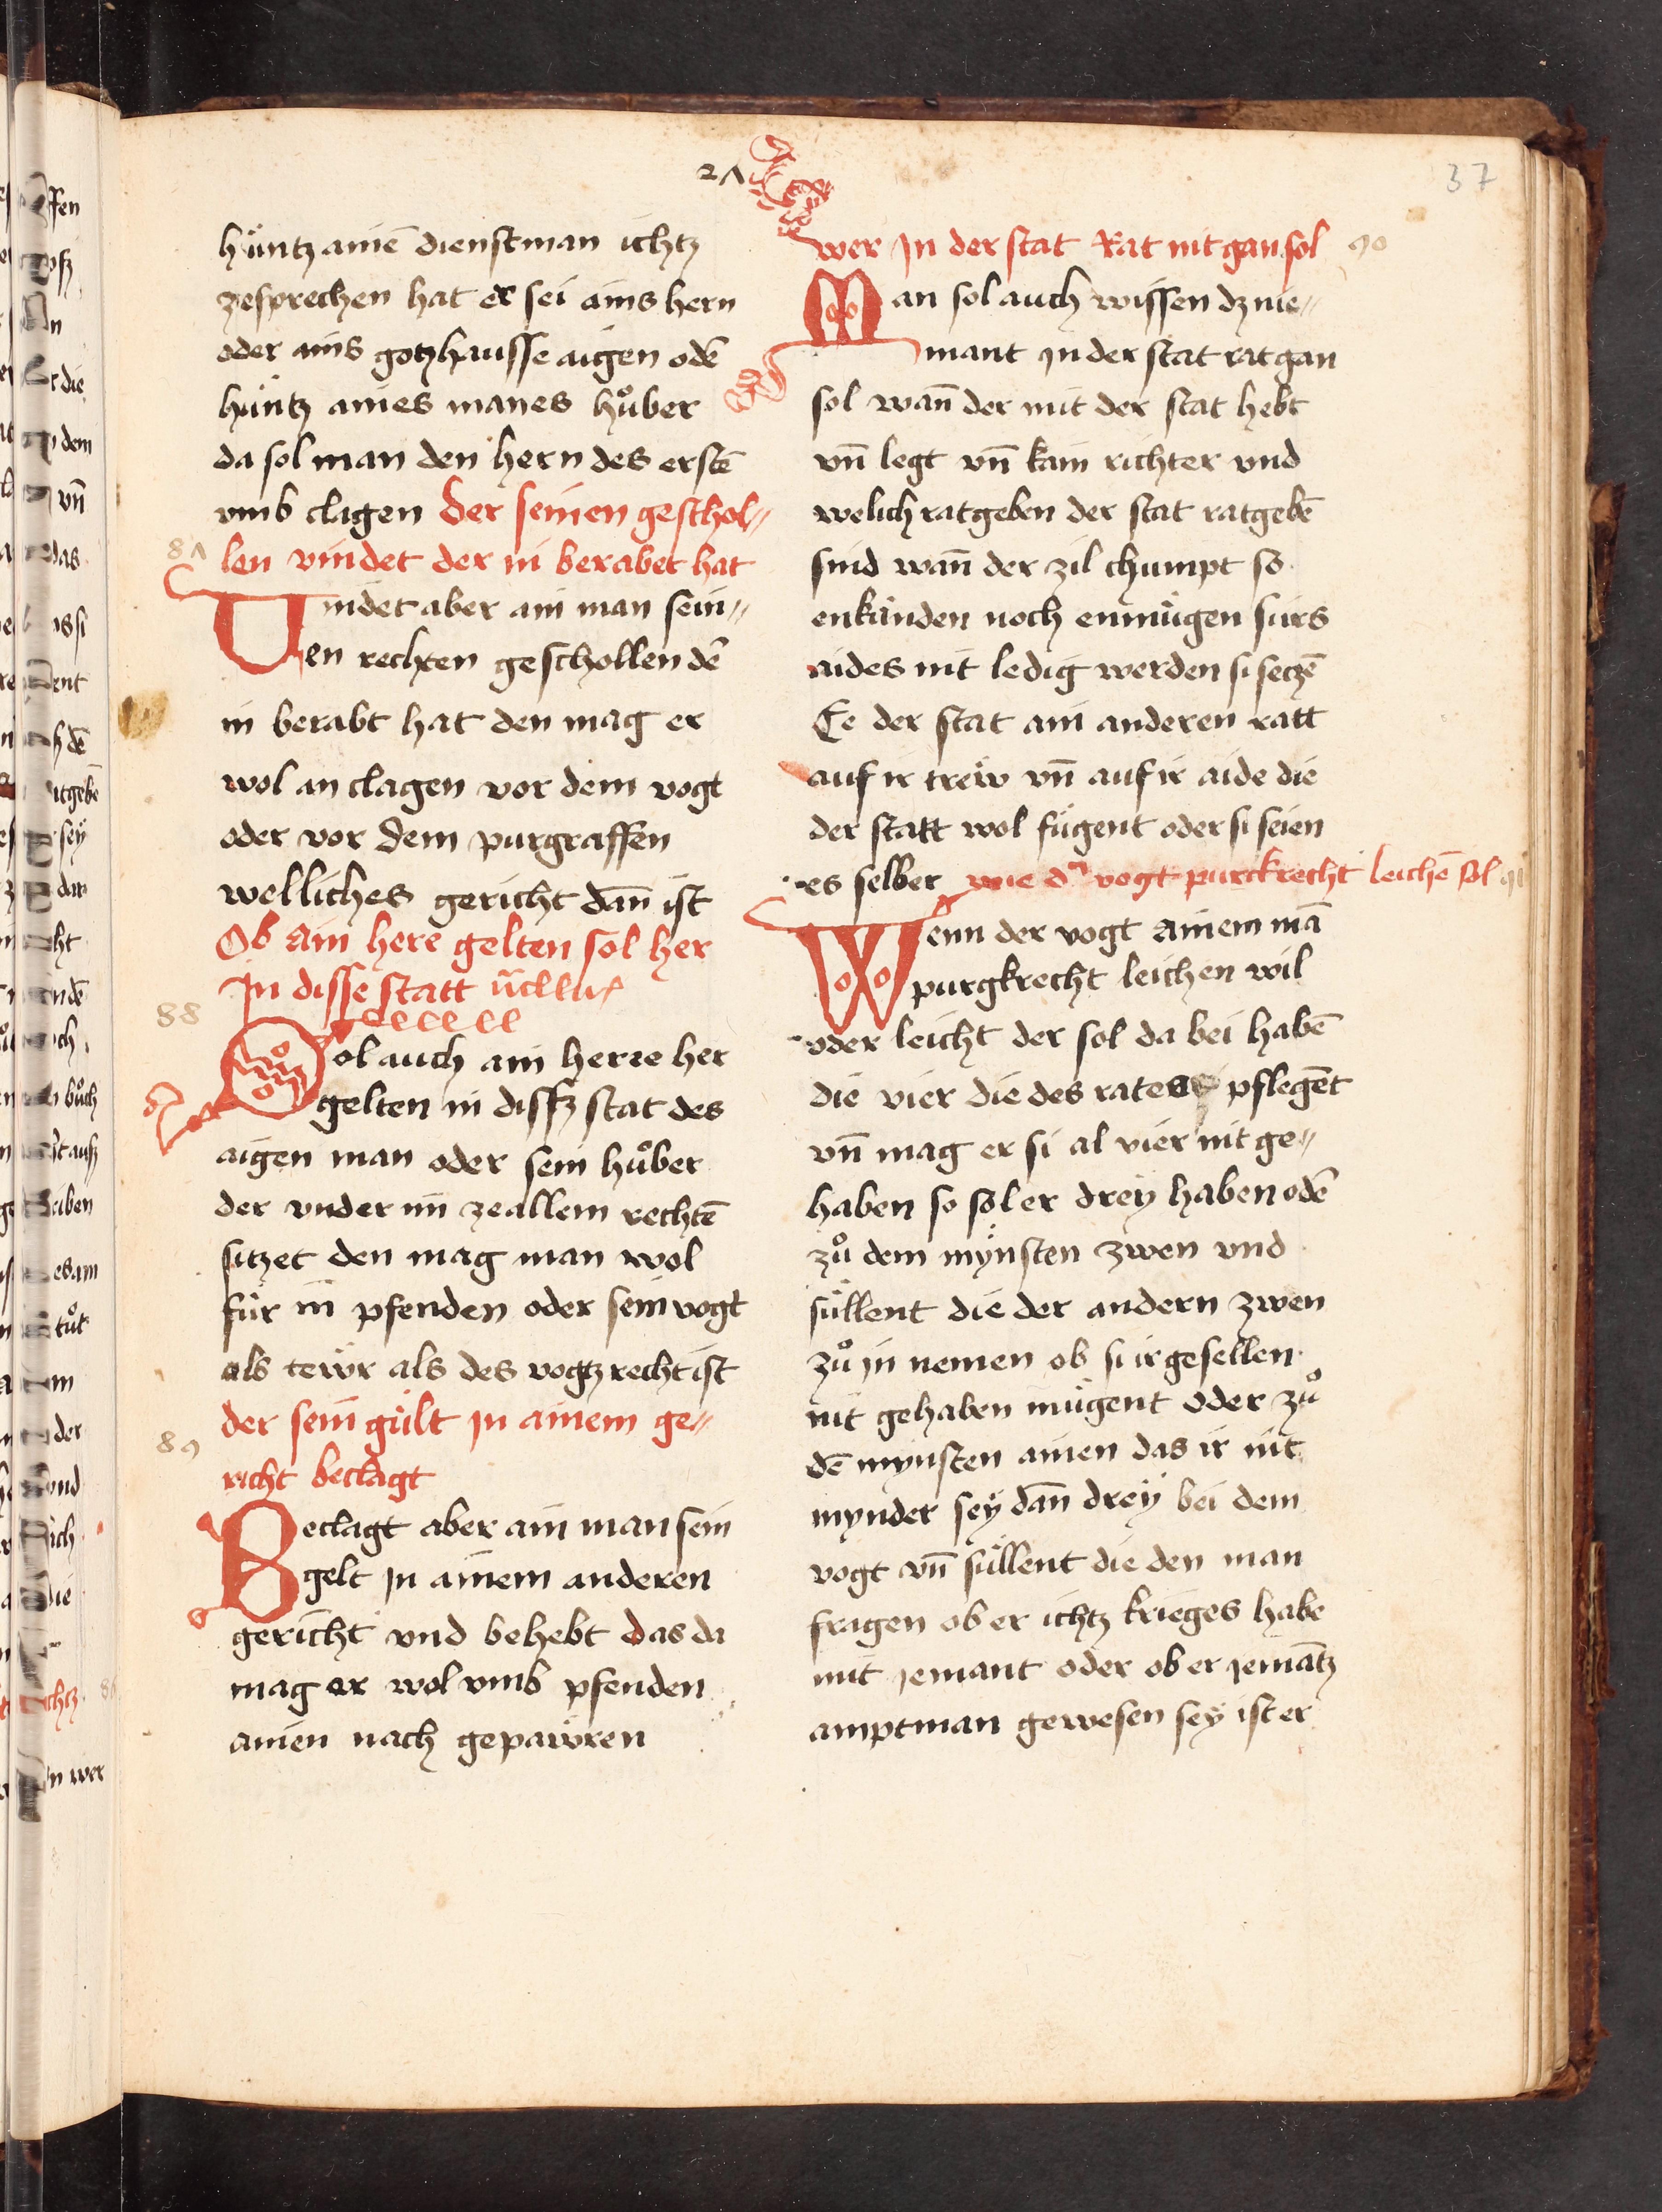 21
37
hüntz ainē dienstman ichtz
zesprechen hat er sei ains hern
oder ains gotzhausse aigen odē
hüntz aines manes hůber
da sol man den hern des erstē
vmb clagen der seinen geschol„
87 len vindet der in berabet hat
Uindet aber ain man sein„
en rechten geschollen dē
in berabt hat den mag er
wol an clagen vor dem vogt
oder vor dem purgraffen
welliches gericht dan̄ ist
Ob ain here gelten sol her
In disse statt
88
Sol auch ain herre her
gelten in dissz stat des
aigen man oder sein hůber
der vnder im zeallem rechtē
sitzet den mag man wol
für in pfenden oder sein vogt
als tewr als des vogtz recht ist
der sein gült in ainem ge„
89 richt beclagt
Beclagt aber ain man sein
gelt in ainem anderen
gericht vnd behebt das da
mag er wol vmb pfenden
ainen nach gepawren
wer In der stat Rat nit gan sol 90
Man sol auch wissen dz nie„
mant in der stat rat gan
sol wan̄ der mit der stat hebt
vn̄ legt vn̄ kain richter vnd
welich ratgeben der stat ratgebē
sind wan̄ der zil chumpt so
enkünden noch enmügen si irs
aides nit ledig werden si seczē
Ee der stat ain anderen ratt
auf ir trew vn̄ auf ir aide die
der statt wol fügent oder si seien
es selber wie d' vogt purckrecht leichē sol 91
Wenn der vogt ainem mā
purgkrecht leichen wil
oder leicht der sol da bei habē
die vier die des rates pflegēt
vn̄ mag er si al vier nit ge„
haben so sol er dreÿ haben odē
zů dem mÿnsten zwen vnd
süllent die der andern zwen
zů in nemen ob si ir gesellen
nit gehaben mügent oder zů
dē mynsten ainen das ir nit
mynder seÿ dan̄ dreÿ bei dem
vogt vn̄ süllent die den man
fragen ob er ichtz krieges habe
mit iemant oder ob er iemātz
amptman gewesen seÿ ist er